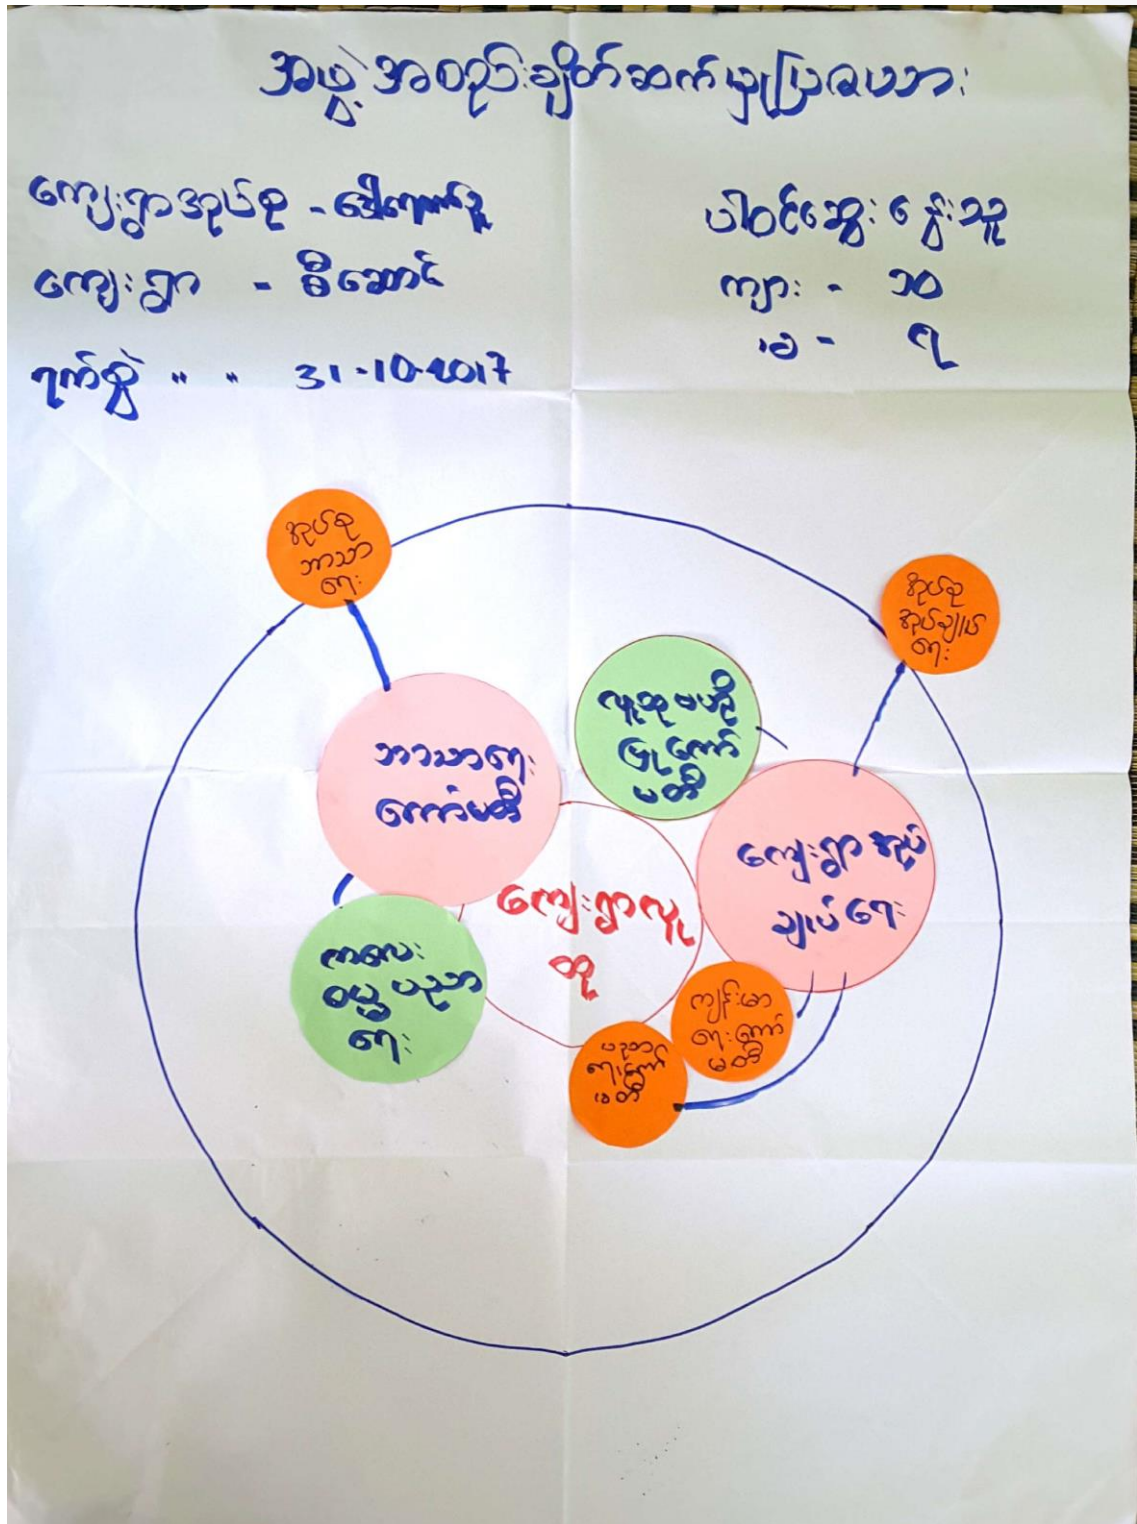 အဖွဲ့အစည်းချိတ်ဆက်မှုပြဇယား
ကျေးရွာအုပ်စု -
ကျေးရွာ - ဓီဆောင်
ရက်စွဲ " " 31-10-2017
ပါဝင်ဆွေးနွေးသူ
ကျား - ၁၀
မ - ၇
အုပ်စု
ဘာသာ
ရေး
အုပ်စု
အုပ်ချုပ်
ရေး
လူထုဗဟို
ပြုကော်
မတီ
ဘာသာရေး
ကော်မတီ
ကျေးရွာအုပ်
ချုပ်ရေး
ကျေးရွာလူ
ထု
ကလေး
ဓမ္မပညာ
ရေး
ကျန်းမာ
ရေးကော်
မတီ
ပညာ
ရေးကော်
မတီ